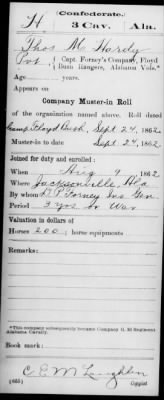 Confederate.
H. 3 Cav. Ala.
Thos M. Hardy
Pvt, Capt. Forney's Company, Floyd
Bush Rangers, Alabama Vols.*
Age years.
Appears on
Company Muster-in Roll
of the organization named above. Roll dated
Camp Floyd Bush, Sept 24, 1862
Muster-in to date Sept 24, 1862
Joined for duty and enrolled:
When Aug 9 1862
Where Jacksonville, Ala
By whom D P Forney Ins Gen
Period 3 yrs or War
Valuation in dollars of
Horses 200; horse equipments
Remarks:
*This company subsequently became Company G, 3d Regiment
Alabama Cavalry.
Book mark:
C E McLaughlin
(655) Copyist